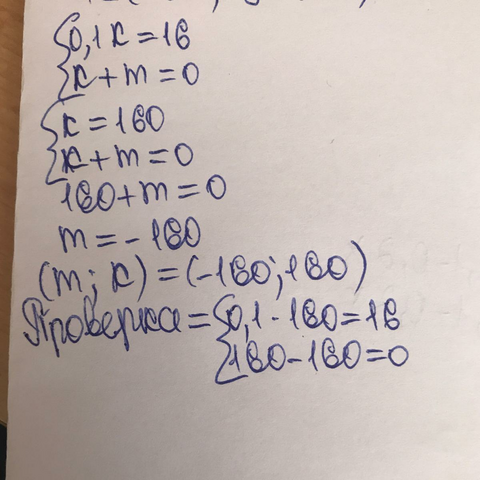 {0,1к=16
{к+m=0
{к=160
{к+m=0
160+m=0
m=-160
(m; к)=(-160;160)
Проверка={0,1·160=16
{160-160=0